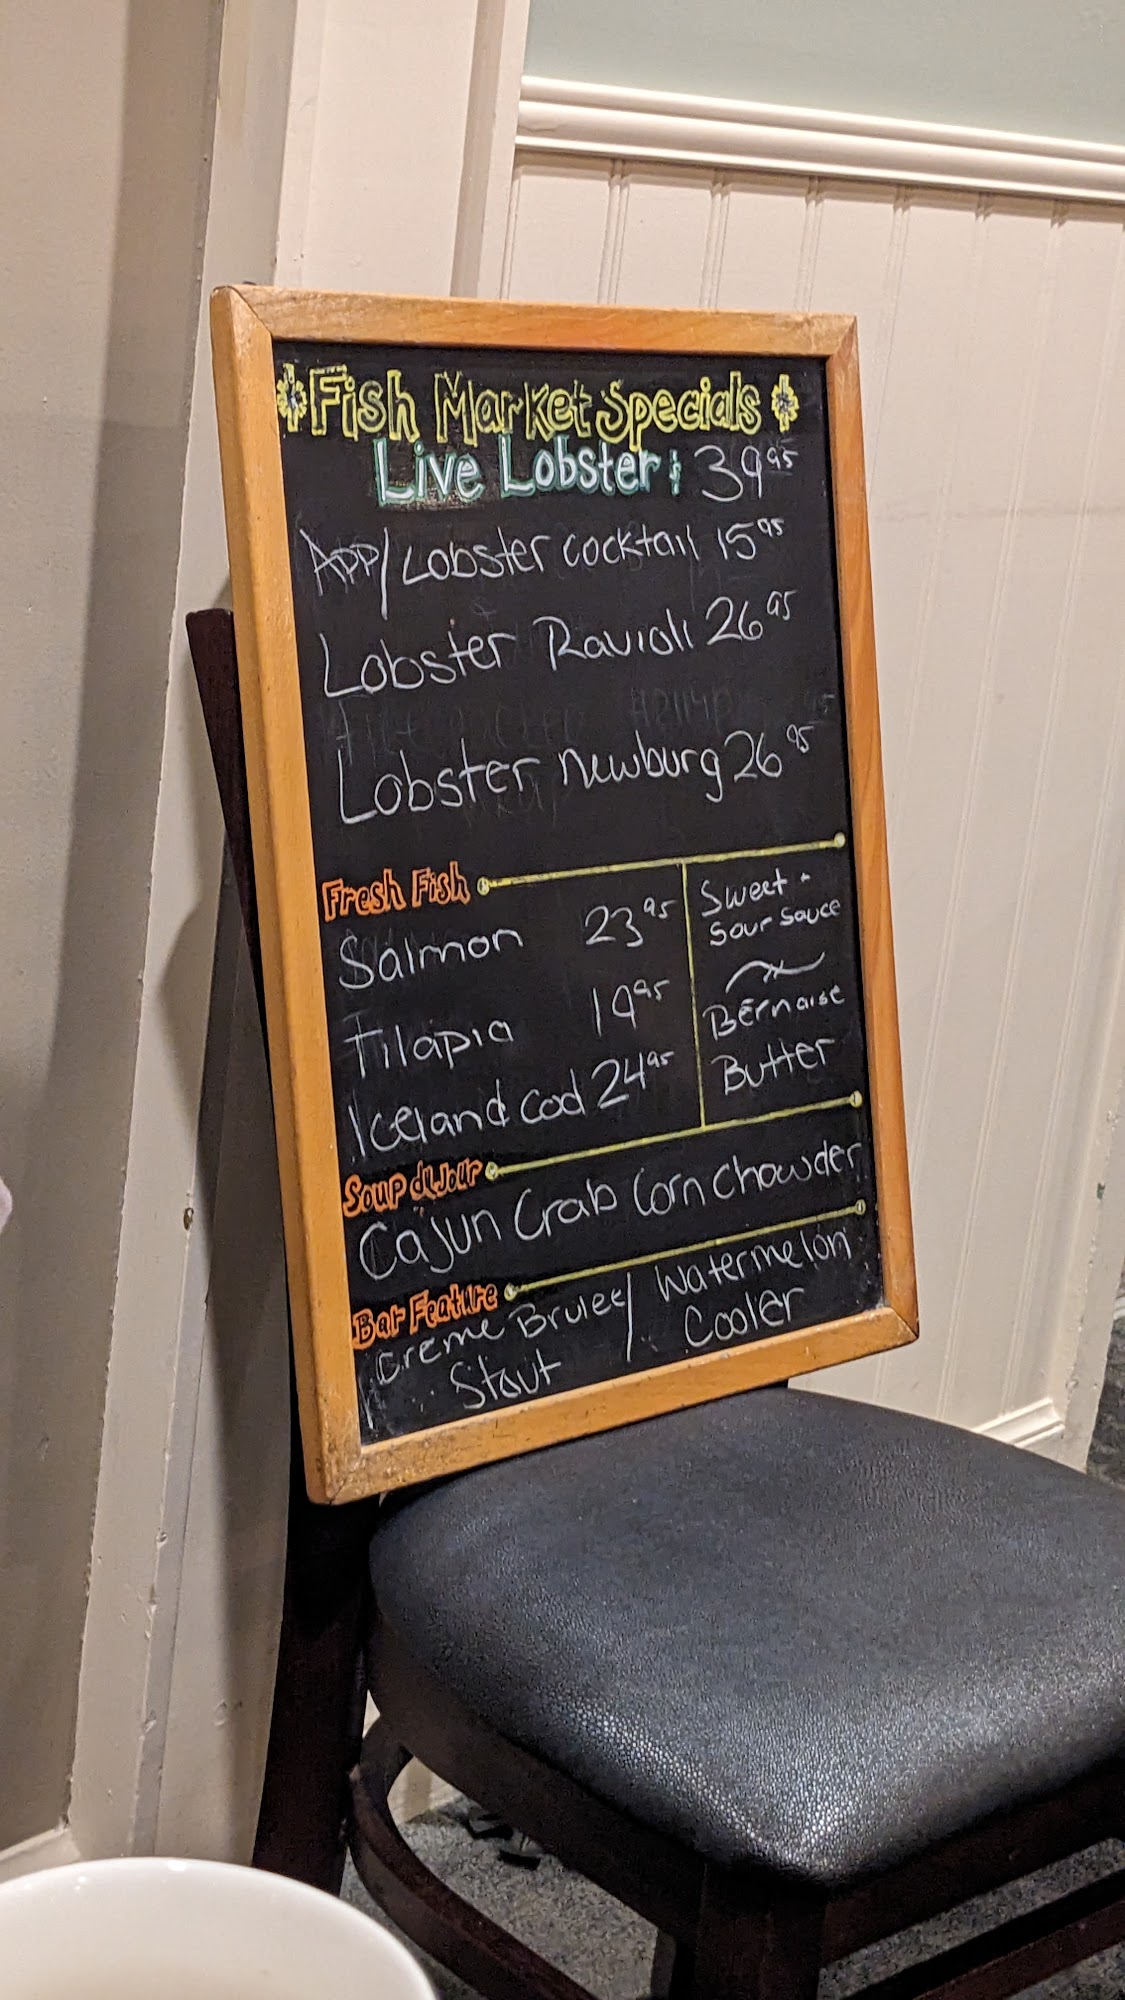 Fish Market Specials
Live Lobster: 39.95
App/Lobster cocktail 15.95
Lobster Ravioli 26.95
Lobster Newburg 26.95
Fresh Fish
Salmon 23.95
Tilapia 19.95
Iceland Cod 24.95
Sweet -
Sour Sauce
Bernaise
Butter
Soup du Jour
Cajun Crab Corn Chowder
Bar Feature
Creme Brulee/ Watermelon
Stout Cooler